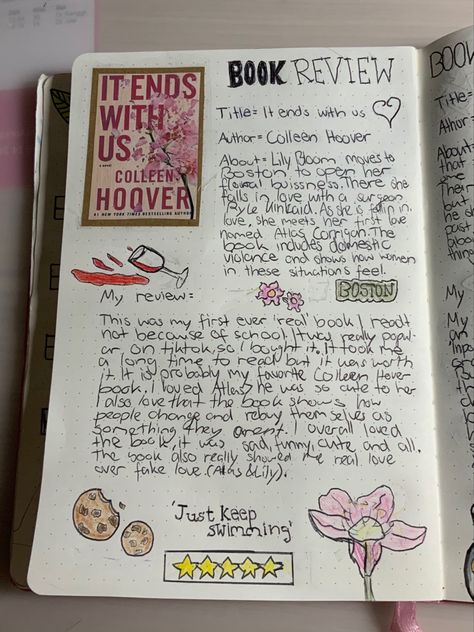 BOOK REVIEW
IT ENDS
WITH
US
A NOVEL
COLLEEN
HOOVER
#1 NEW YORK TIMES BESTSELLING AUTHOR
Title= It ends with us
Author= Colleen Hoover
About= Lily Bloom moves to
Boston to open her
floural buissness. There she
falls in love with a surgeon
Ryle Kinkaid. As she is fallin in
love, she meets her first love
named Atlas Corrigan. The
book includes domestic
violence and shows how women
in these situations feel.
BOSTON
My review=
This was my first ever 'real' book I readt
not because of school. It was really popul-
ar on tiktok, so I bought it. It took me
a long time to read but it was worth
it. It is probably my favorite Colleen Hover
book. I loved Atlas, he was so cute to her
I also love that the book shows how
people change and they themselves as
something they arent. I overall loved
the book, it was sad, funny, cute and all.
The book also really showed me real love
over fake love. (Atlas & Lily).
'Just keep
swimming'
BOOK
Title=
Athur=
About=
that
My
My